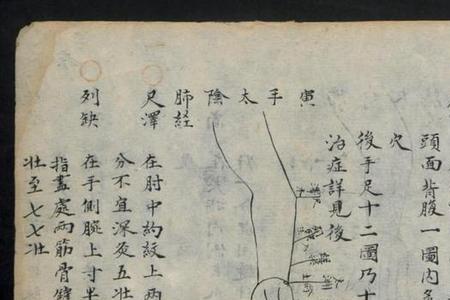 頭面背腹一圖內
穴
後手足十二圖乃十
治症詳見後
寅手太陰肺經
尺澤 在肘中約紋上兩
分不宜深灸五壯
列缺 在手側腕上寸半
指盡處兩筋骨
壯至七七壯